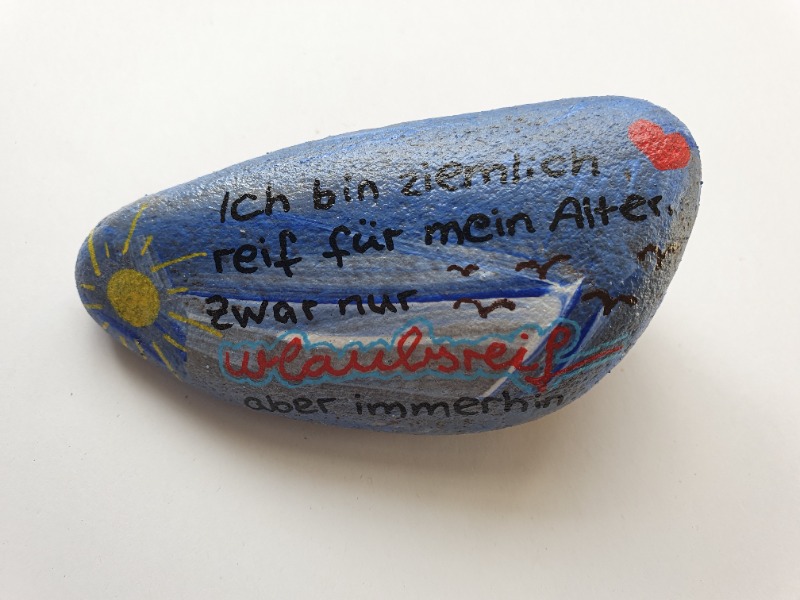 Ich bin ziemlich
reif für mein Alter.
zwar nur
urlaubsreif
aber immerhin